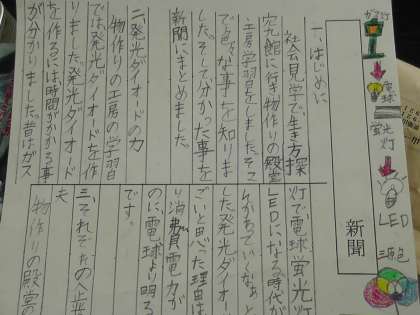 ガス灯
電球
蛍光灯
LED
三原色
新聞
一、はじめに
社会見学で生き方探
究館に行き物作りの殿堂
工房学習をしました。そこ
で色々な事を知りま
した。そして分かった事を
新聞にまとめました。
二、発光ダイオードの力
物作りの工房の学習
では、発光ダイオードを作
りました。発光ダイオード
を作るには時間がかかる事
が分かりました。昔はガス
灯で、電球、蛍光灯
LEDになる時代が
ていくなぁと
した発光ダイオー
ごいと思った理由は
り消費電力が
のに、電球より明る
です。
三、それぞれの人
夫
物作りの殿堂の